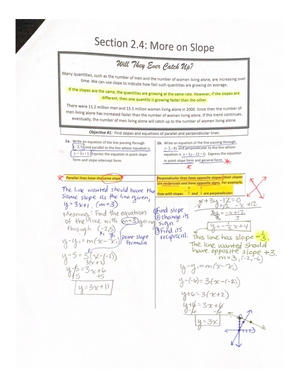 Section 2.4: More on Slope
Will They Ever Catch Up?
Many quantities, such as the number of men and the number of women living alone, are increasing over
time. We can use slope to indicate how fast such quantities are growing on average.
If the slopes are the same, the quantities are growing at the same rate. However, if the slopes are
different, then one quantity is growing faster than the other.
There were 11.2 million men and 15.5 million women living alone in 2000. Since then the number of
men living alone has increased faster than the number of women living alone. If this trend continues,
eventually, the number of men living alone will catch up to the number of women living alone.
Objective #1: Find slopes and equations of parallel and perpendicular lines.
1a. Write an equation of the line passing through
(-2, 5) and parallel to the line whose equation is
y = 3x + 1. Express the equation in point-slope
form and slope-intercept form.
1b. Write an equation of the line passing through
(-2, -6) and perpendicular to the line whose
equation is x + 3y - 12 = 0. Express the equation
in point-slope form and general form.
Parallel lines have the same slope.
The line wanted should have the
same slope as the line given,
y = 3x+1. (m=3)
Find the equation
of the line with m=3
through (-2,5)
y-y₁=m(x-x₁) point slope formula
y-5=3(x-(-2))
3(x+2)
y-5=3x+6
+5 +5
y=3x+11
Perpendicular lines have opposite slopes
are reciprocals
① Find slope
② change its sign
③ Find its reciprocal
x+3y-12=0
-x +12 -x +12
3y=-x+12
y=-⅓x+4
This line has slope -⅓
The line wanted should
have opposite slope +3.
m=3, (-2,-6)
y-y₁=m(x-x₁)
y-(-6)=3(x-(-2))
y+6=3(x+2)
y+6=3x+6
y=3x